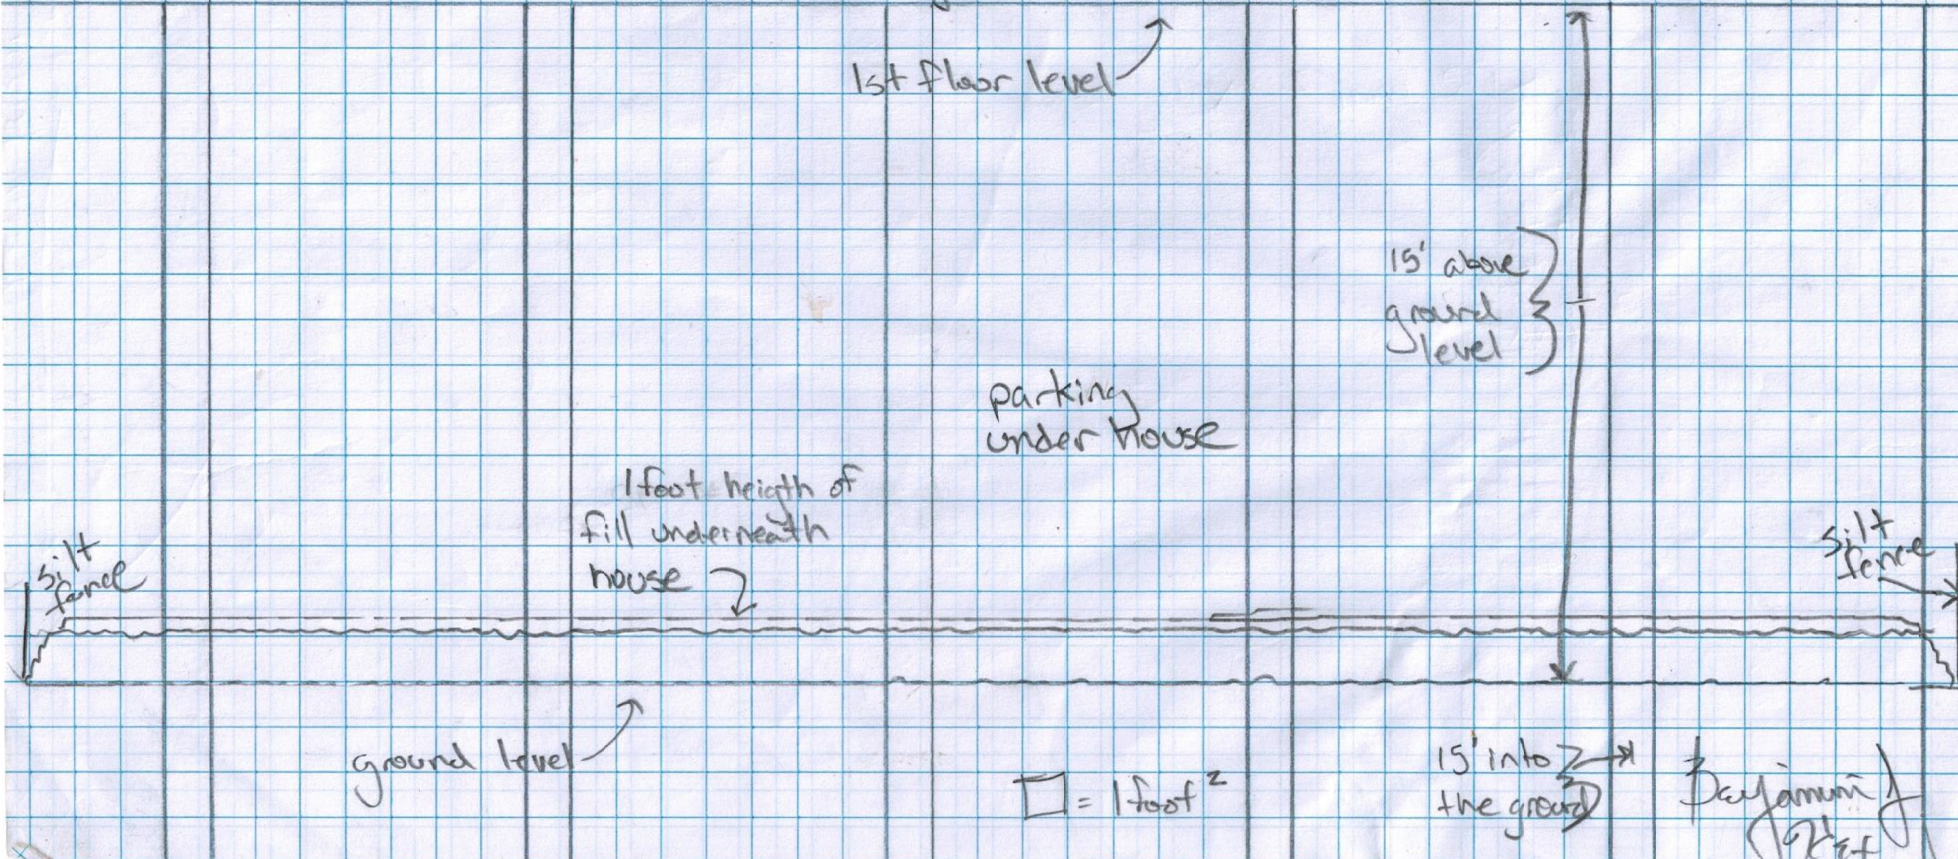 1st floor level
15' above
ground
level
parking
under house
1 foot heigth of
fill underneath
house
silt
fence
silt
fence
ground level
= 1 foot²
15' into
the ground
Benjamin J